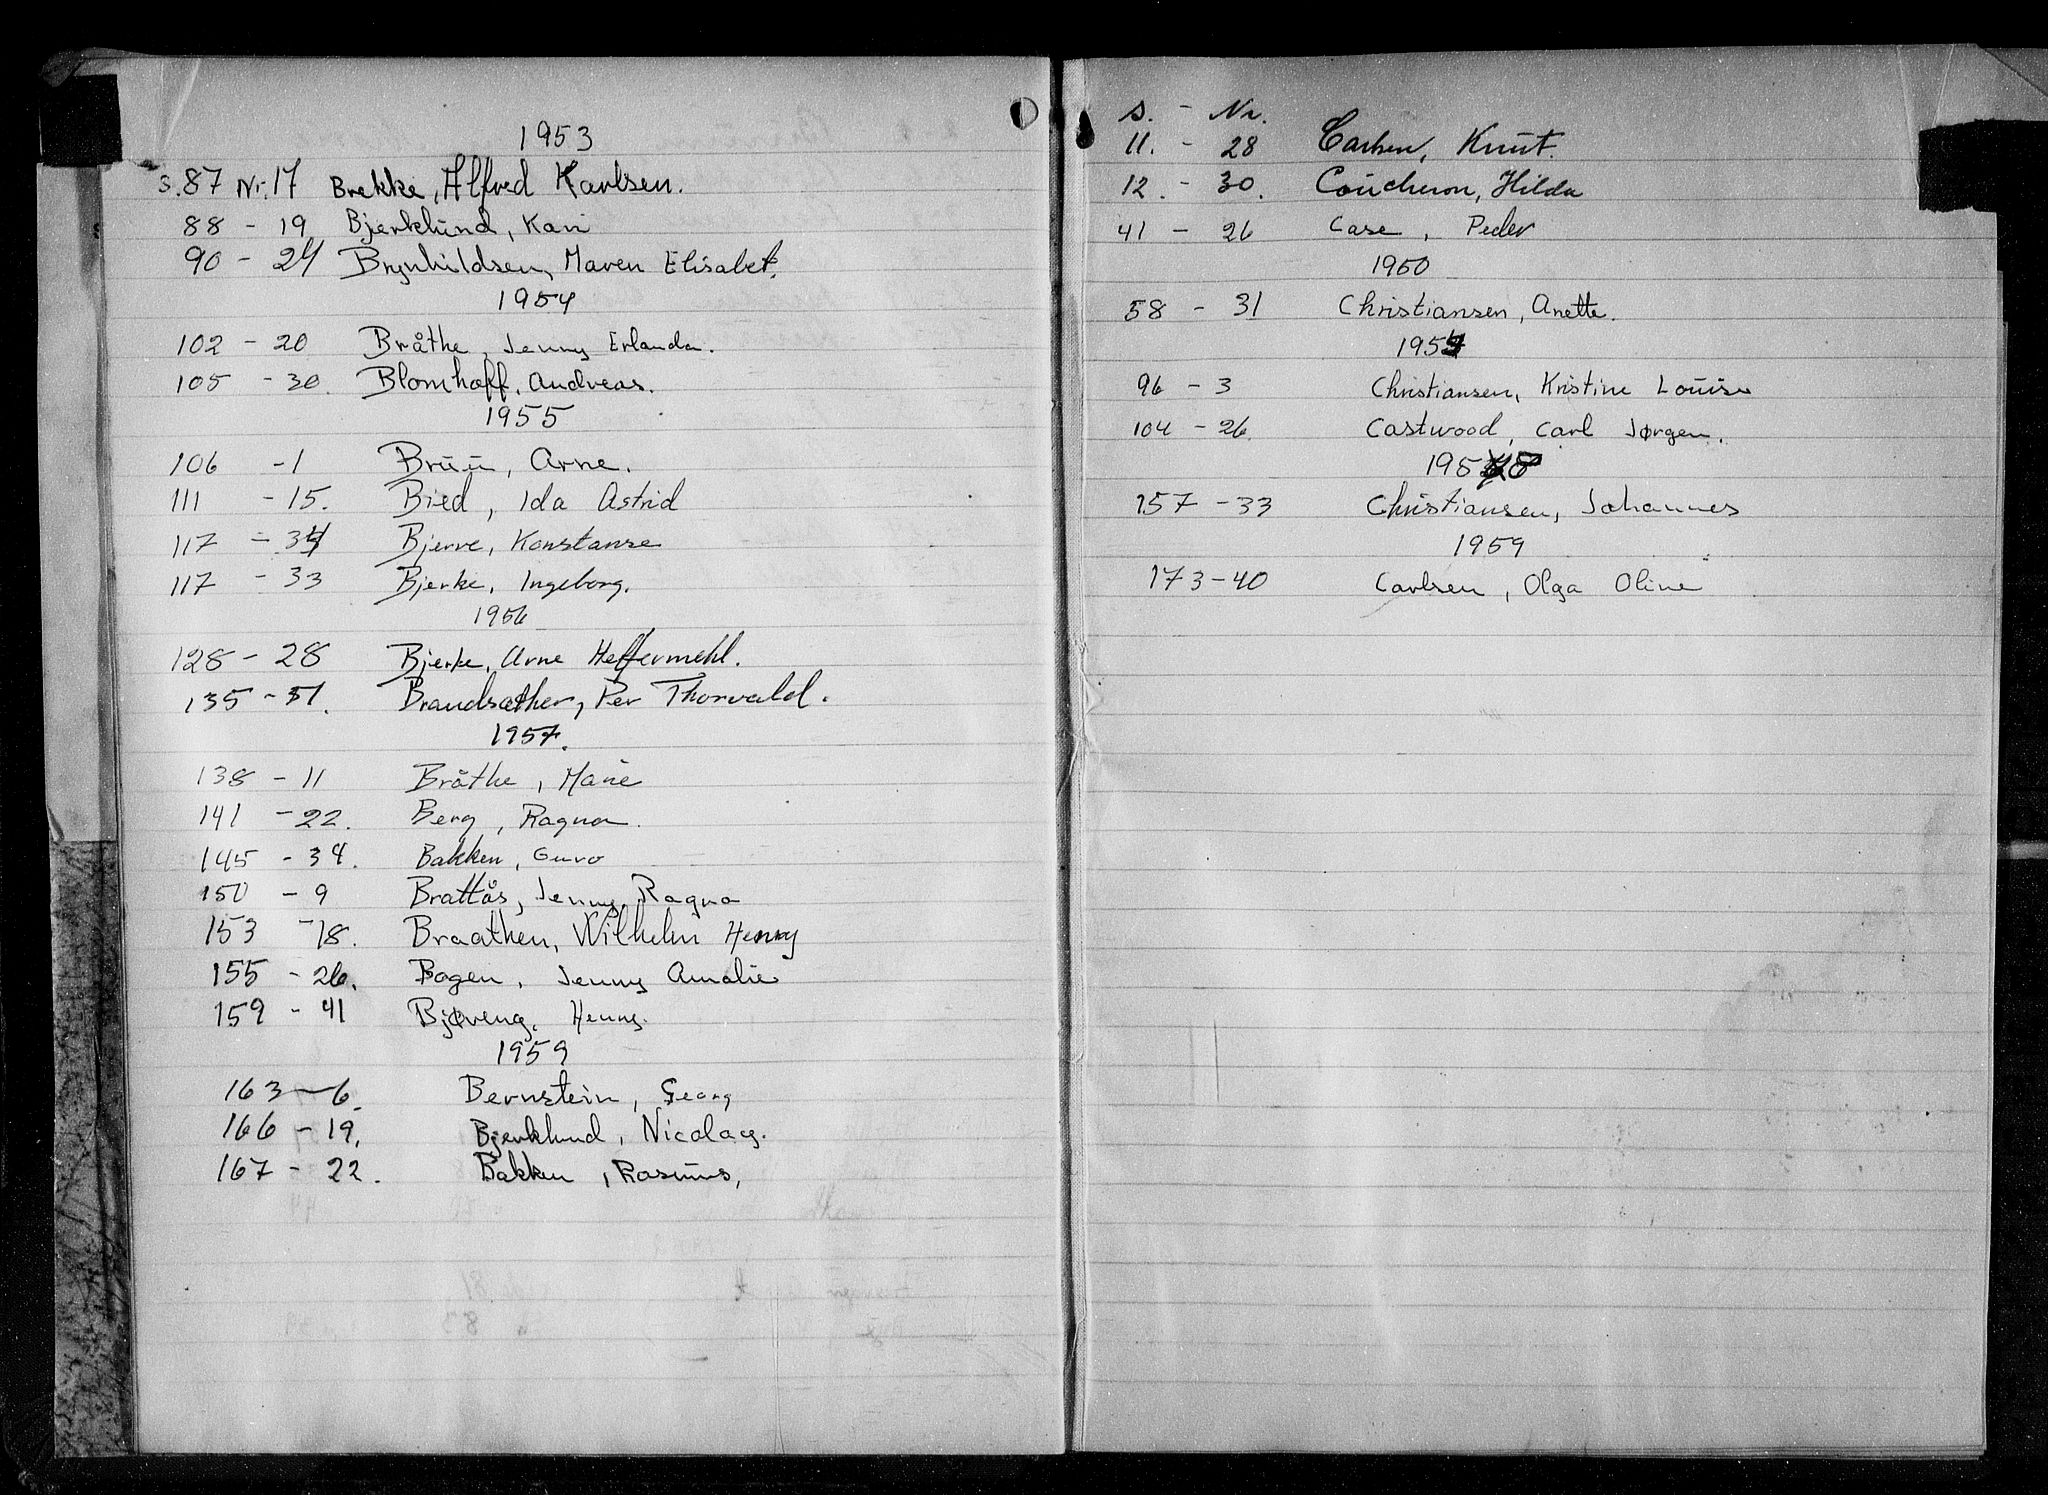 1953
s. 87 Nr. 17 Brekke, Alfred Karlsen.
88 - 19 Bjerklund, Kari
90 - 24 Brynhildsen, Maren Elisabet.
1954
102 - 20 Bråthe, Jenny Erlanda.
105 - 30. Blomhoff, Andreas.
1955
106 - 1 Bruu, Arne.
111 - 15. Bied, Ida Astrid
117 - 34 Bjerve, Konstanse
117 - 33 Bjerke, Ingeborg.
1956
128 - 28 Bjerke, Arne Heffermehl.
135 - 51. Brandsæther, Per Thorvald.
1957.
138 - 11 Bråthe, Marie
141 - 22. Berg, Ragna.
145 - 34. Bakken, Guro
150 - 9 Brattås, Jenny Ragna
153 - 18. Braathen, Wilhelm Henry
155 - 26. Bogen, Jenny Amalie
159 - 41 Bjøveng, Henny.
1959
163 - 6. Bernstein, Georg
166 - 19. Bjerklund, Nicolay.
167 - 22. Bakken, Rasmus,
s. - Nr.
11. - 28 Carlsen, Knut.
12. - 30. Coucheron, Hilda
41 - 26 Case, Peder
1950
58 - 31 Christiansen, Anette.
1954
96 - 3 Christiansen, Kristine Louise
104 - 26. Castwood, Carl Jørgen.
1958
157 - 33 Christiansen, Johannes
1959
173 - 40 Carlsen, Olga Oline